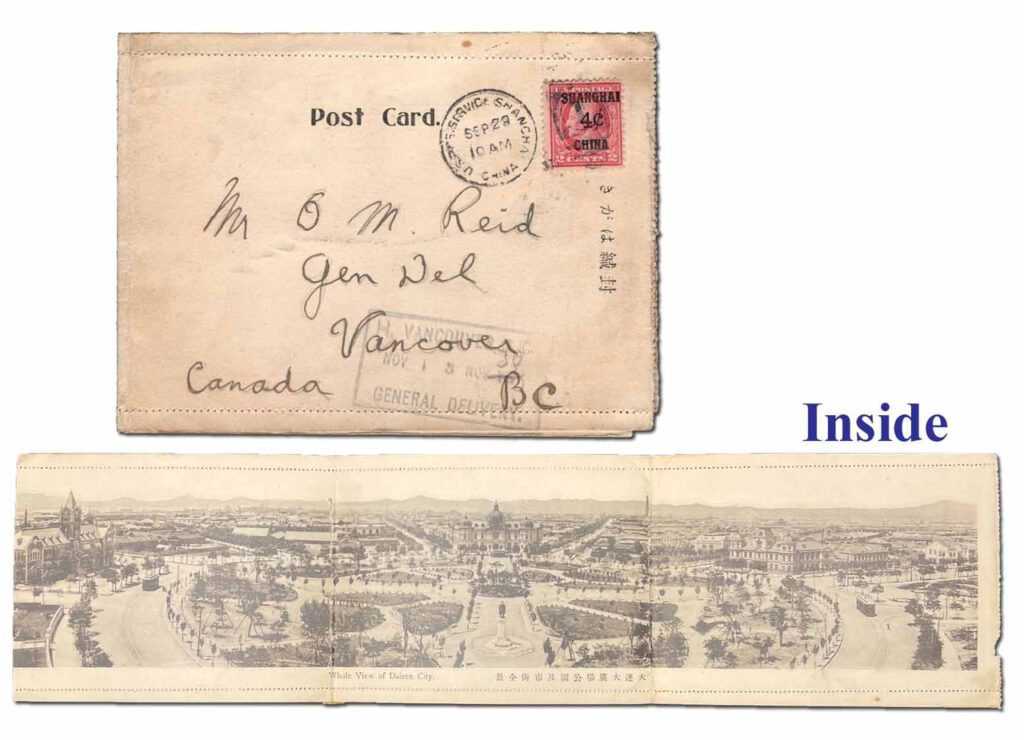 Post Card.
SERVICE SHANGHAI
SEP 29
10 AM
CHINA
U.S. POSTAGE
SHANGHAI
4¢
CHINA
2 CENTS 2
封緘はがき
Mr O M. Reid
Gen Del
Vancover
Canada BC
VANCOUVER
NOV 1
GENERAL DELIVERY.
Inside
Whole View of Dairen City.
大連大廣場公園及市街全景